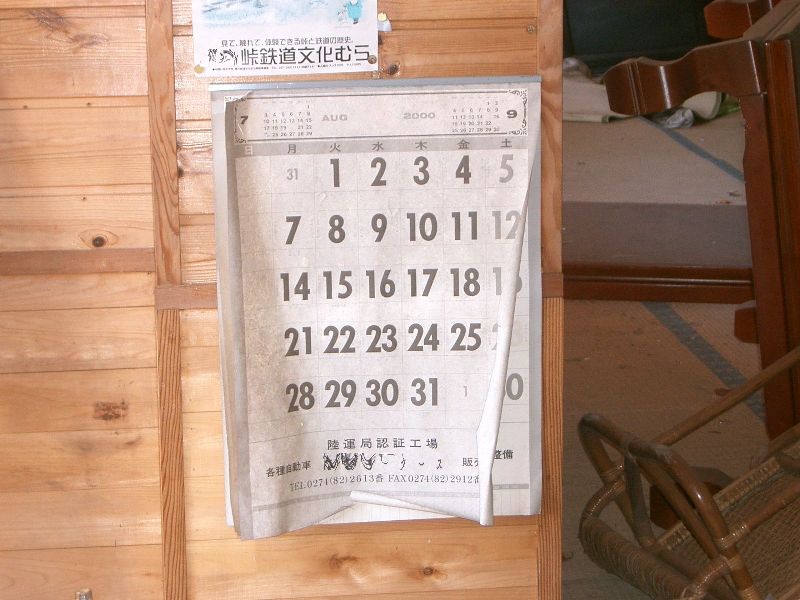 見て、触れて、体験できる峠と鉄道の歴史。
峠鉄道文化むら
7 AUG 2000 9
日 月 火 水 木 金 土
31 1 2 3 4 5
7 8 9 10 11 12
14 15 16 17 18
21 22 23 24 25
28 29 30 31 1 30
陸運局認証工場
各種自動車 販売 整備
TEL0274(82)2613番 FAX0274(82)2912番